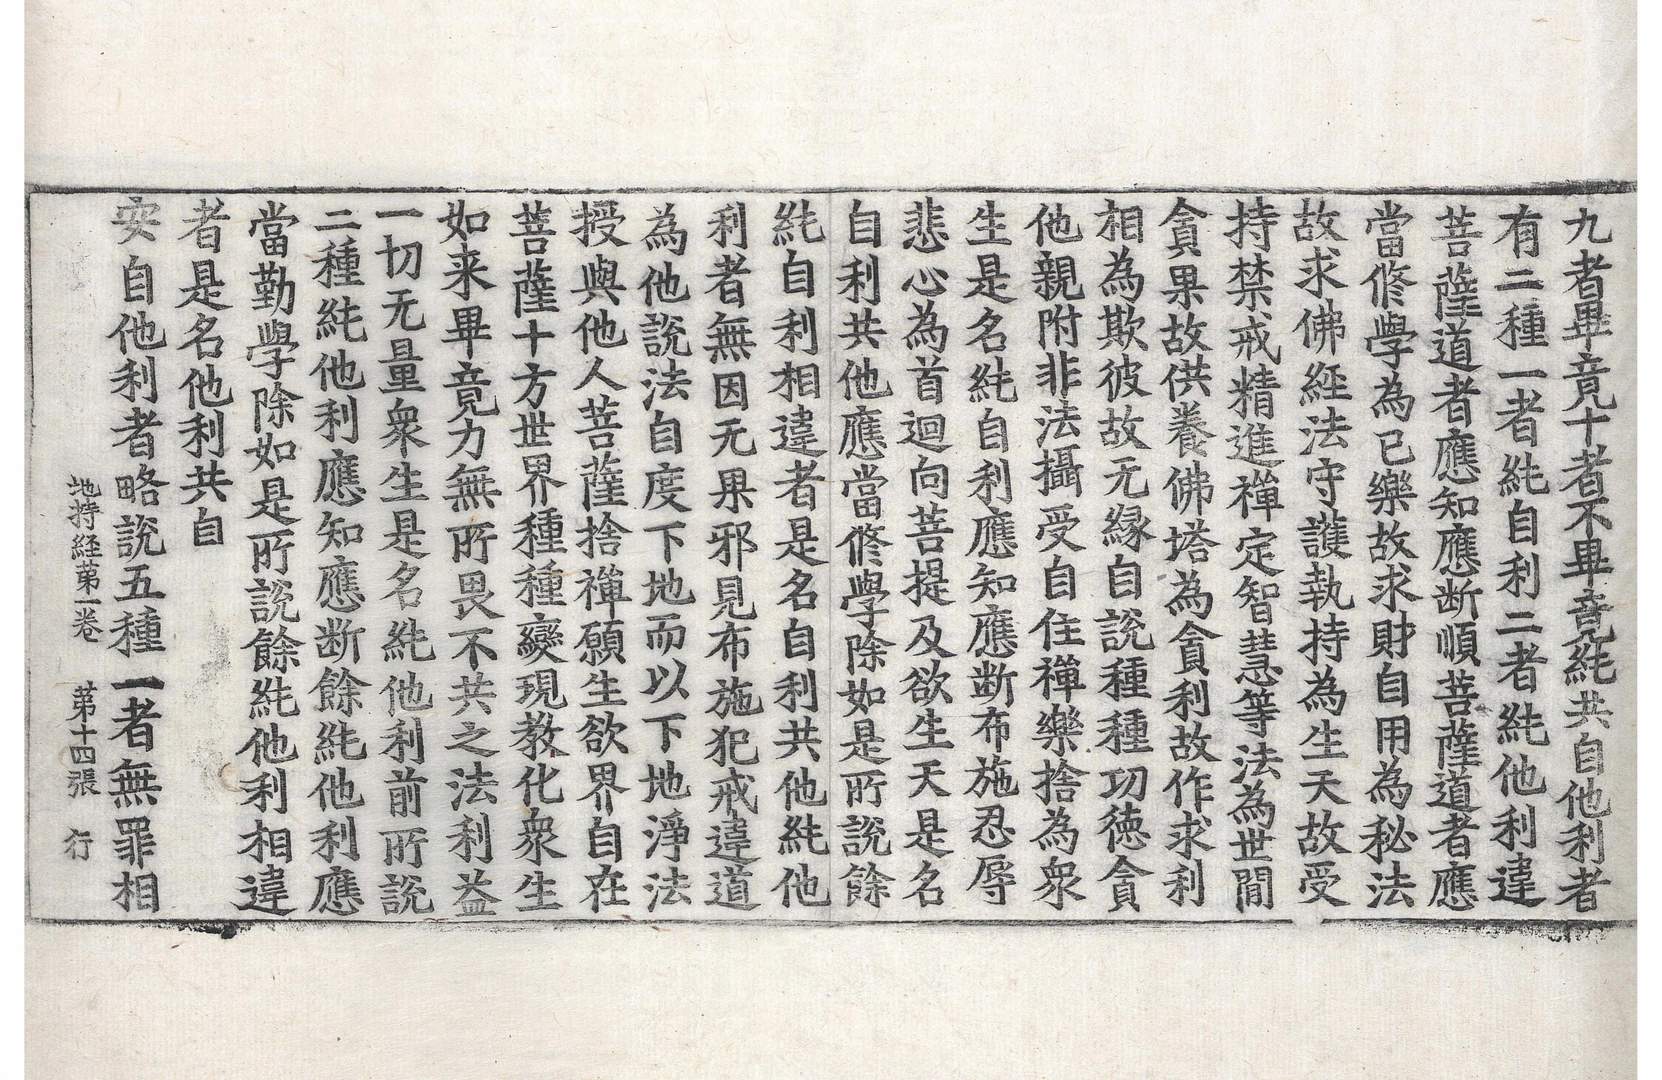 九者畢竟十者不畢竟純共自他利者
有二種一者純自利二者純他利違
菩薩道者應知應断順菩薩道者應
當修學為已樂故求財自用為秘法
故求佛經法守護執持為生天故受
持禁戒精進禪定智慧等法為世閒
貪果故供養佛塔為貪利故作求利
相為欺彼故无緣自說種種功德貪
他親附非法攝受自住禪樂捨為衆
生是名純自利應知應断布施忍辱
悲心為首迴向菩提及欲生天是名
自利共他應當修學除如是所說餘
純自利相違者是名自利共他純他
利者無因无果邪見布施犯戒違道
為他說法自度下地而以下地淨法
授與他人菩薩捨禪願生欲界自在
菩薩十方世界種種變現教化衆生
如来畢竟力無所畏不共之法利益
一切无量衆生是名純他利前所說
二種純他利應知應断餘純他利應
當勤學除如是所說餘純他利相違
者是名他利共自
安自他利者略說五種一者無罪相
地持経第一卷　第十四張　行